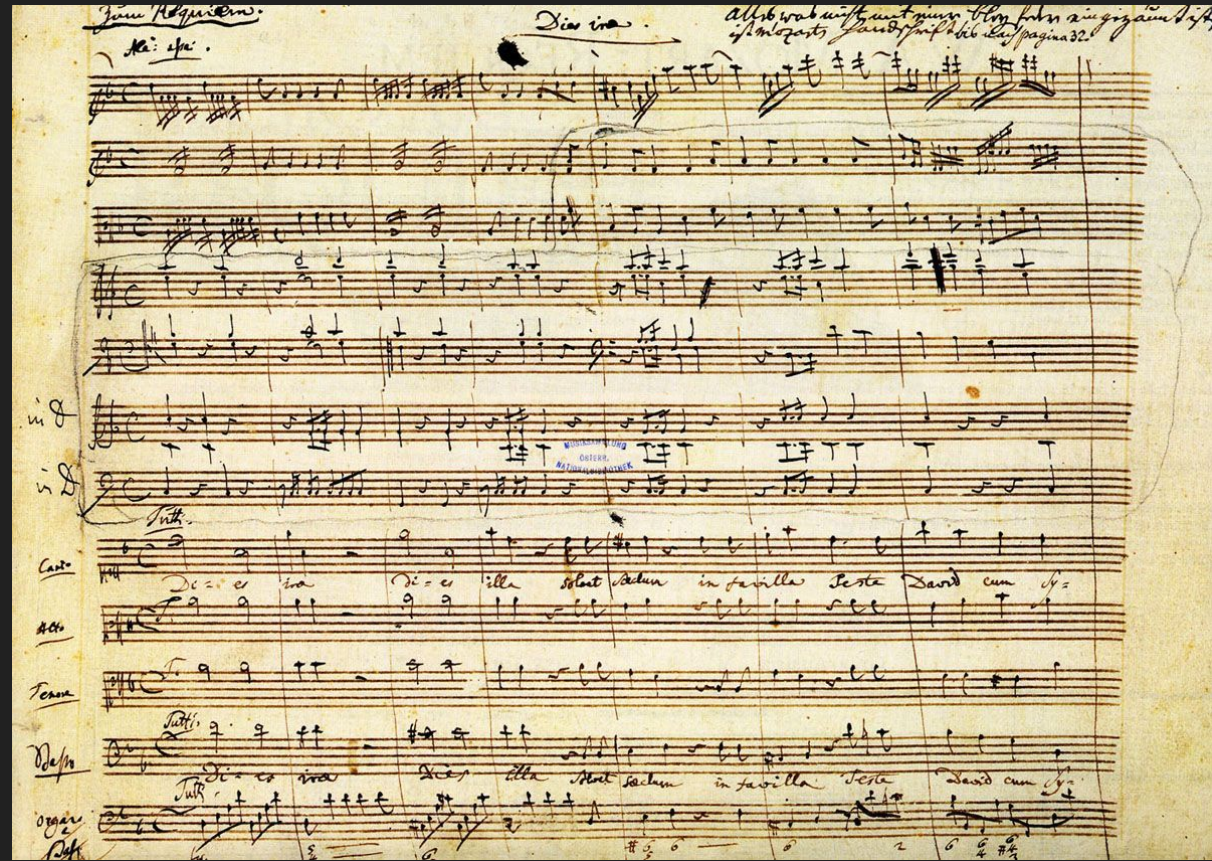 Zum Requiem.
Dies irae.
Alles was nicht mit einer bley feder eingezäunt ist,
ist Mozarts Handschrift bis nach pagina 32.
All: assai.
in D
in D
MUSIKSAMMLUNG
ÖSTERR.
NATIONALBIBLIOTHEK
Tutti.
Canto
Di = es ira di = es illa solvet sæclum in favilla Teste David cum Sy =
Alto
T.
Tenore
T.
Tutti.
Basso
Di = es ira Dies illa solvet sæclum in favilla Teste David cum Sy =
Tutti
organo
e
Bassi